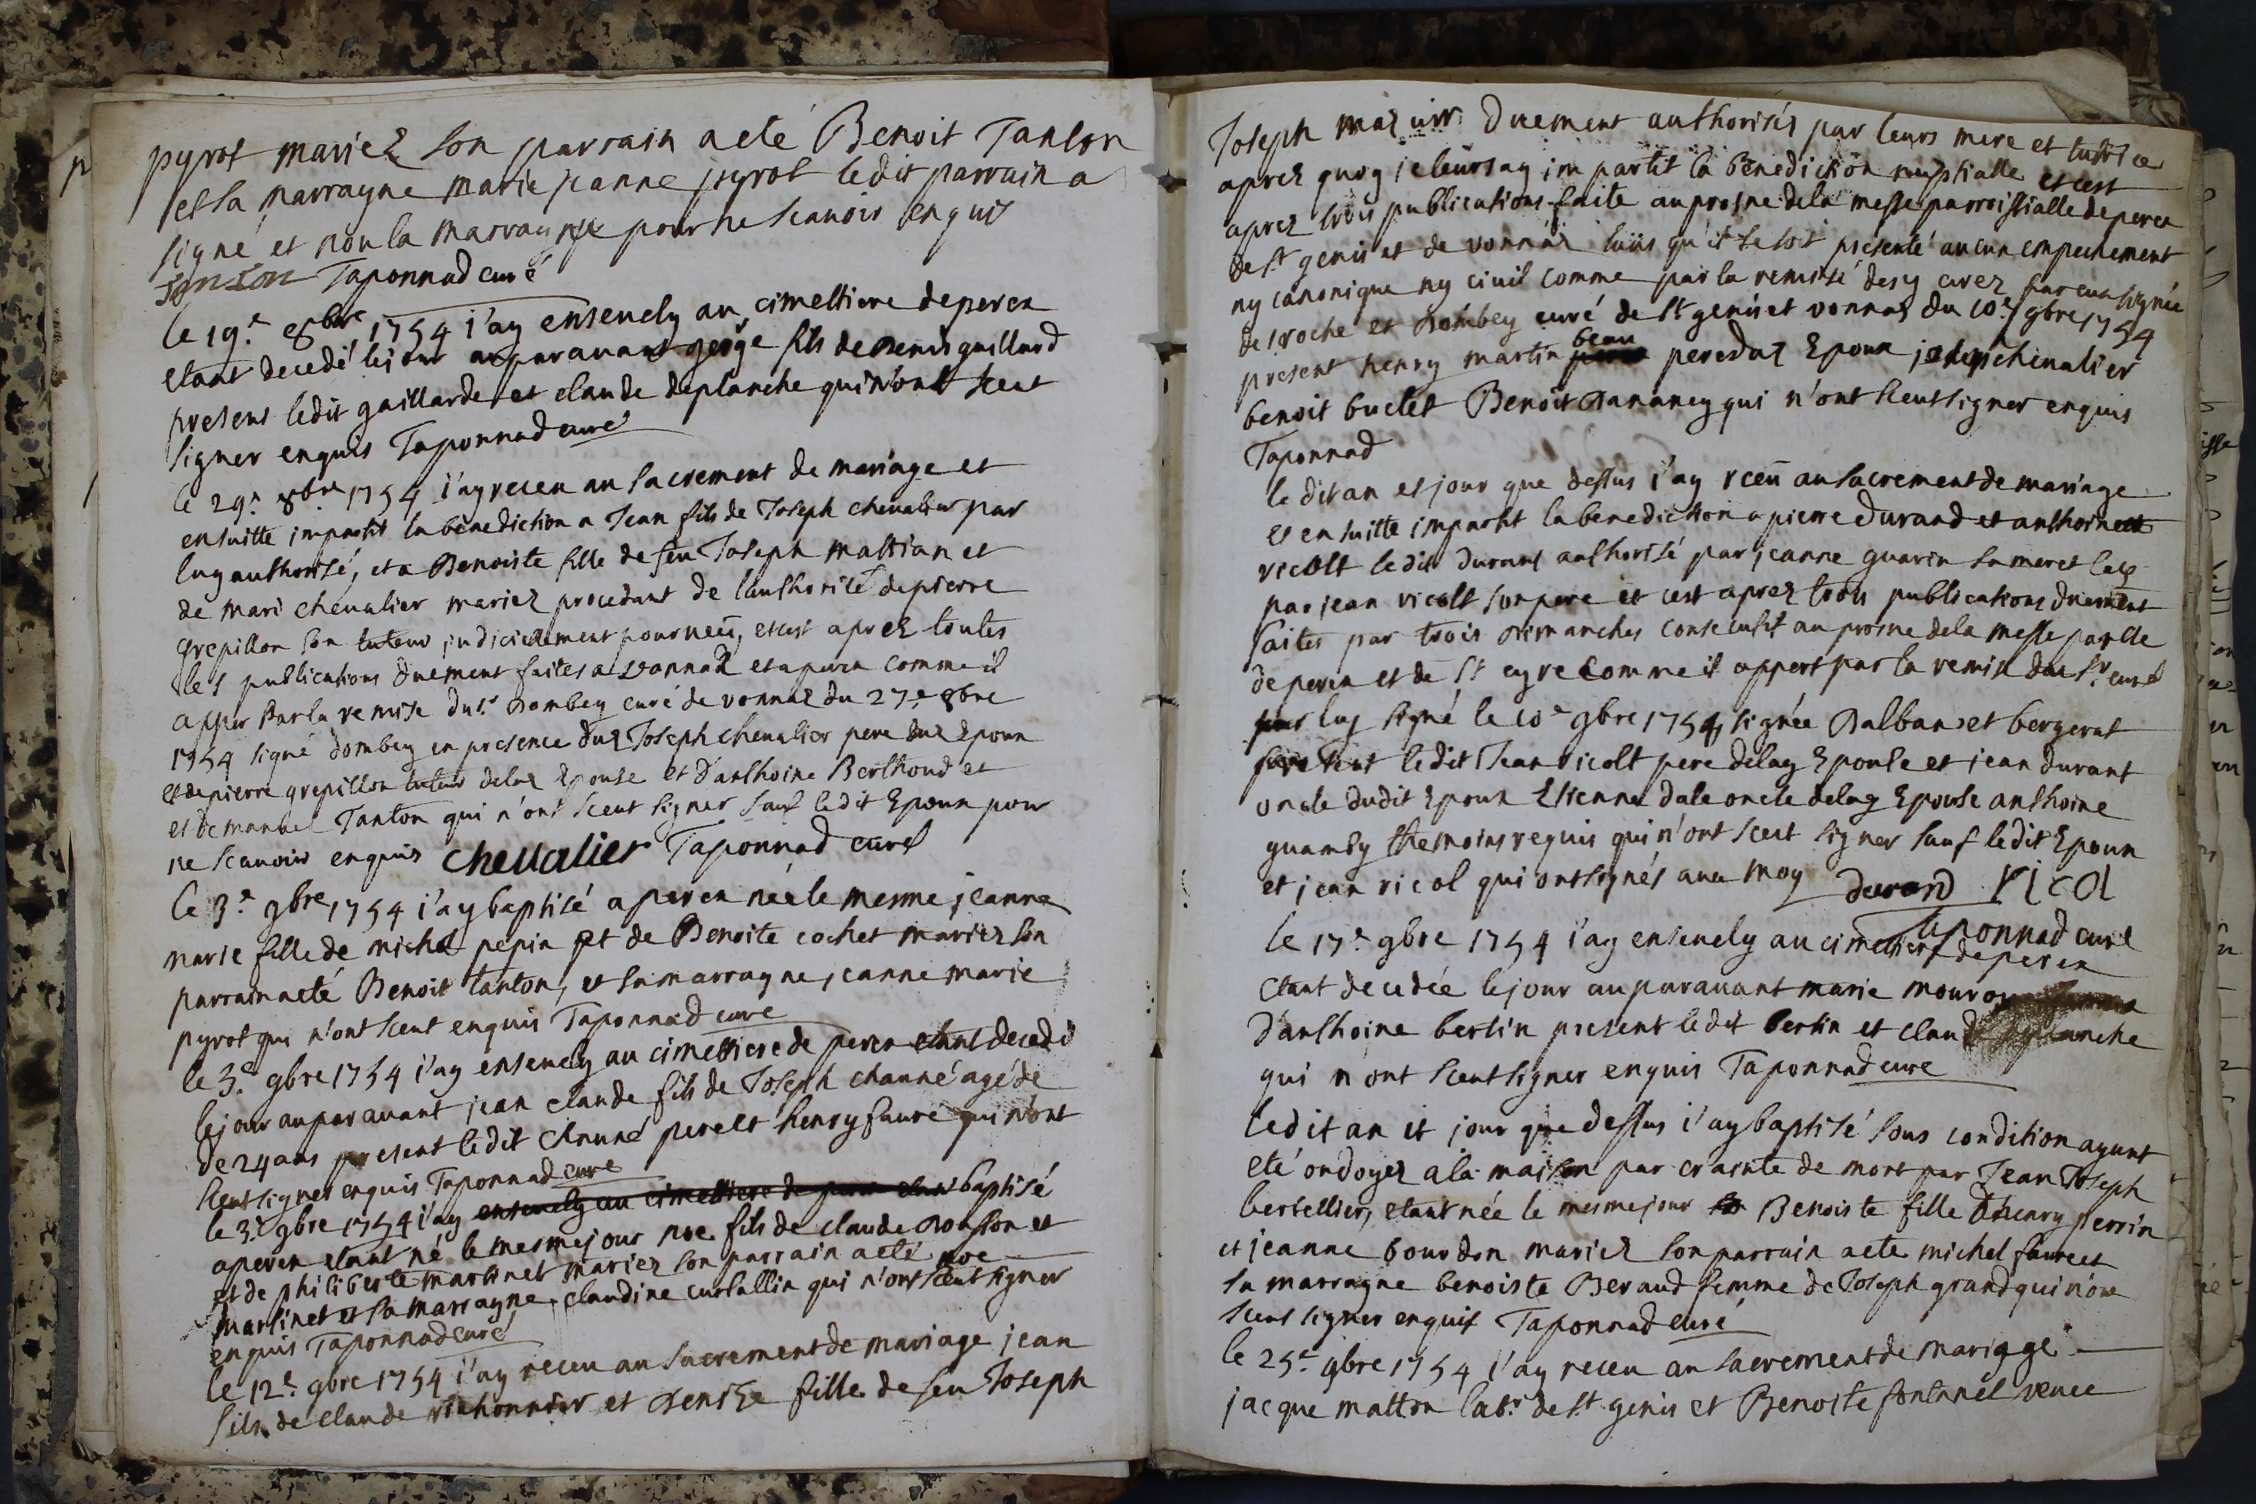 pyrot mariez son parrain a eté Benoit Tanton
et la marrayne marie jeanne pyrot ledit parrain a
signé et non la marrayne pour ne scauoir enquis
Tanton Taponnad curé
le 19.e 8bre 1754 i'ay enseuely au cimettiere de perex
etant decedé le jour auparauant george fils de denis guillard
presens ledit gaillarde et claude deplanche qui n'ont sceut
signer enquis Taponnad curé
le 29.e 8bre 1754 i'ay receu au sacrement de mariage et
ensuitte impartit la benediction a Jean fils de Joseph cheualier par
luy authorisé, et a Benoiste fille de feu Joseph mattian et
de mari cheualier mariez procedant de l'authorité de pierre
grepillon son tuteur judiciellement pourueü, et c'est aprez toutes
les publications duement faites a vonnaz et a perex comme il
apper par la remise du sr. Dombey curé de vonnaz du 27.e 8bre
1754 signé dombey en presence duz Joseph cheualier pere duz Epoux
et de pierre grepillon tuteur delaz Epouse et d'anthoine Berthoud et
et de manuel Tanton qui n'ont sceut signer sauf ledit Epoux pour
ne scauoir enquis cheualier Taponnad curé
le 3.e 9bre 1754 i'ay baptisé a perex née le mesme jeanne
marie fille de michel pepin et de Benoite cochet mariez son
parrain a eté Benoit tanton, et sa marrayne jeanne marie
pyrot qui n'ont sceut enquis Taponnad curé
le 3.e 9bre 1754 i'ay enseuely au cimettiere de perex etant decedé
le jour auparauant jean claude fils de Joseph channé agé de
de 24 ans present ledit channé pere et henry faure qui n'ont
sceut signer enquis Taponnad curé
le 3.e 9bre 1754 i'ay enseuely au cimettiere de perex etant baptisé
a perex etant né le mesme jour noe fils de claude Bonson et
et de philiberte martinet mariez son parrain a eté noe
martinet et sa marrayne claudine curtallin qui n'ont sceut signer
enquis Taponnad curé
le 12.e 9bre 1754 i'ay receu au sacrement de mariage jean
fils de claude et denise fille de feu Joseph
Joseph duement authorisés par leurs mere et tutrice
aprez quoy je leurs ay impartit la benediction nuptialle et c'est
aprez trois publications faite au prosne de la messe parroissialle de perex
de st genis et de vonnaz sans qu'il se soit présenté aucun empechement
ny canonique ny ciuil comme par la remise des curez par eux signée
desroche et dombey curé de st genis et vonnaz du 10.e 9bre 1754
present henry martin beau pere duz Epoux joseph cheualier
benoit buclet Benoit dananey qui n'ont sceut signer enquis
Taponnad
le dit an et jour que dessus i'ay receü au sacrement de mariage
et ensuitte impartit la benediction a pierre durand et anthoinette
ricolt ledit durant authorisé par jeanne guarin sa mere et
par jean ricolt son pere et c'est aprez trois publications duement
faites par trois dimanches consecutif au prosne de la messe par elle
de perex et de st cyre comme il appert par la remise du sr. curé
par luy signé le 10.e 9bre 1754 signée Balban et bergerat
present ledit Jean ricolt pere delay Epouse et jean durant
oncle dudit Epoux Etienne dale oncle delay Epouse anthoine
guamby themoins requis qui n'ont sceut signer sauf ledit Epoux
et jean ricol qui ont signés auec moy durand ricol
Taponnad curé
le 17.e 9bre 1754 i'ay enseuely au cimettiere de perex
etant decedée le jour auparauant marie
d'anthoine bertin present ledit bertin et claude deplanche
qui n'ont sceut signer enquis Taponnad curé
ledit an et jour que dessus i'ay baptisé sous condition ayant
eté ondoyez a la maison par crainte de mort par Jean Joseph
bertellier, etant née le mesme jour Benoiste fille d'henry perrin
et jeanne bourdon mariez son parrain a ete michel faure et
sa marrayne benoiste Beraud femme de Joseph grand qui n'ont
sceut signer enquis Taponnad curé
le 25.e 9bre 1754 i'ay receu au sacrement de mariage
jacque matton labr. de st genis et Benoiste fontanel veuue